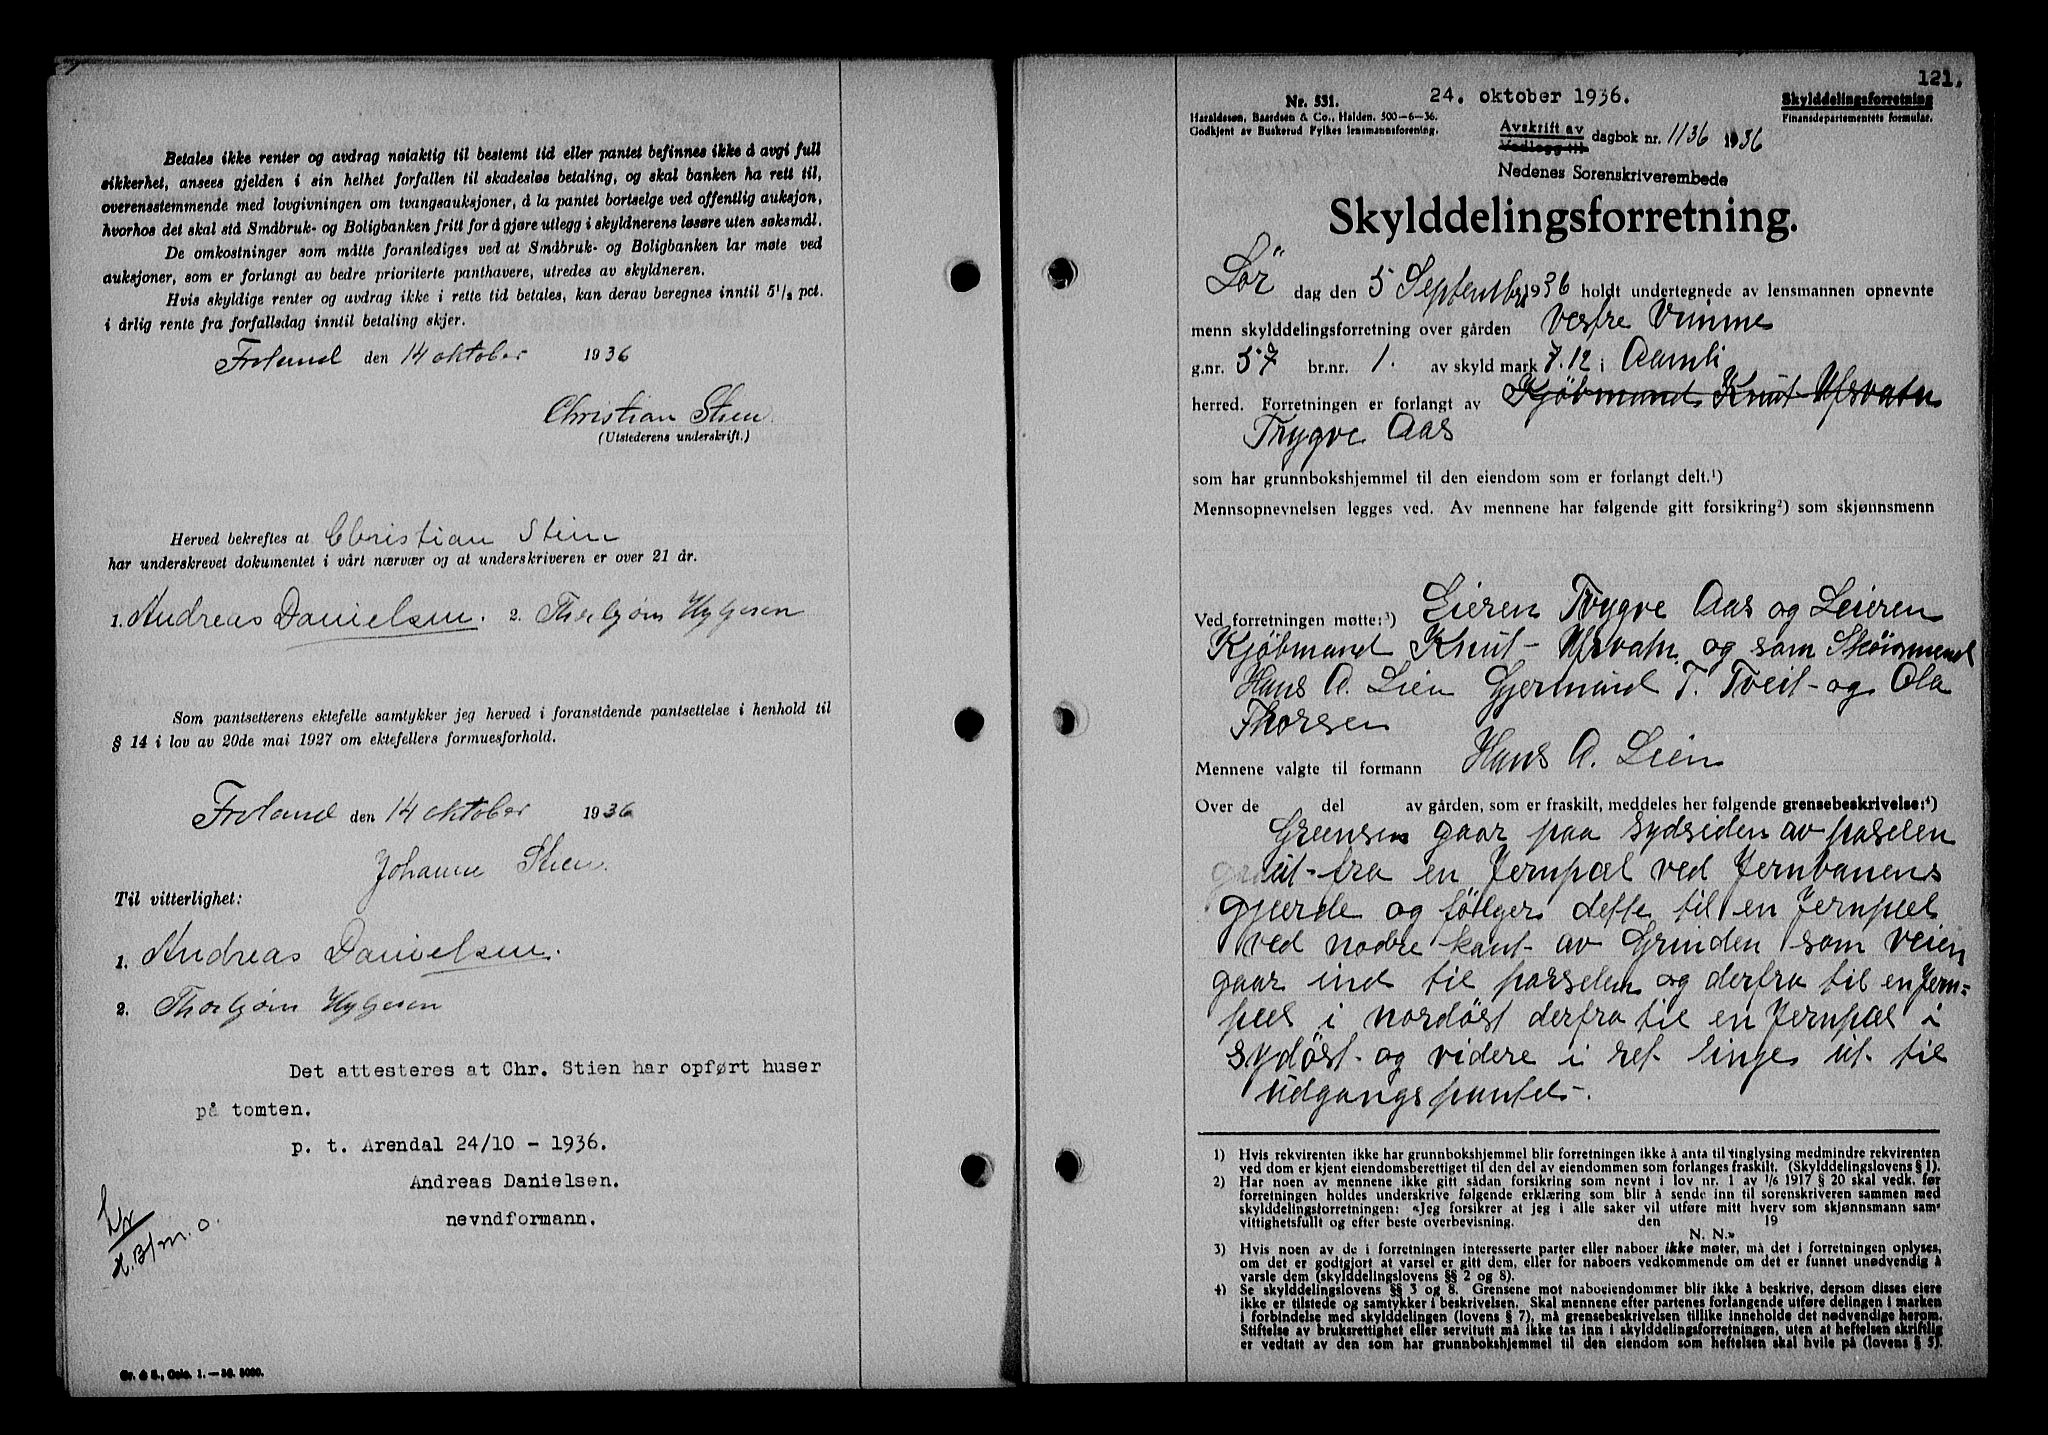 Betales ikke renter og avdrag nøiaktig til bestemt tid eller pantet befinnes ikke å avgi full
sikkerhet, ansees gjelden i sin helhet forfallen til skadesløs betaling, og skal banken ha rett til,
overensstemmende med lovgivningen om tvangsauksjoner, å la pantet bortselge ved offentlig auksjon,
hvorhos det skal stå Småbruk- og Boligbanken fritt for å gjøre utlegg i skyldnerens løsøre uten søksmål.
De omkostninger som måtte foranlediges ved at Småbruk- og Boligbanken lar møte ved
auksjoner, som er forlangt av bedre prioriterte panthavere, utredes av skyldneren.
Hvis skyldige renter og avdrag ikke i rette tid betales, kan derav beregnes inntil 5½ pct.
i årlig rente fra forfallsdag inntil betaling skjer.
Froland den 14 oktober 1936
Christian Stien
(Utstederens underskrift.)
Herved bekreftes at Christian Stien
har underskrevet dokumentet i vårt nærvær og at underskriveren er over 21 år.
1. Andreas Danielsen. 2. Thorbjørn Hygesen
Som pantsetterens ektefelle samtykker jeg herved i foranstående pantsettelse i henhold til
§ 14 i lov av 20de mai 1927 om ektefellers formuesforhold.
Froland den 14 oktober 1936
Johanne Stien.
Til vitterlighet:
1. Andreas Danielsen.
2. Thorbjørn Hygesen
Det attesteres at Chr. Stien har opført huser
på tomten.
p. t. Arendal 24/10 - 1936.
Andreas Danielsen.
nevndformann.
Gr. & S., Oslo. 1.—36. 5000.
121.
Nr. 531.
24. oktober 1936.
Skylddelingsforretning
Haraldssen, Baardsen & Co., Halden. 500-6-36.
Finansdepartementets formular.
Godkjent av Buskerud Fylkes lensmannsforening.
Avskrift av
Vedlegg til dagbok nr. 1136 1936
Nedenes Sorenskriverembede
Skylddelingsforretning.
Lør dag den 5 September 1936 holdt undertegnede av lensmannen opnevnte
menn skylddelingsforretning over gården Vestre Vimme
g.nr. 57 br.nr. 1. av skyld mark 7.12 i Aamli
herred. Forretningen er forlangt av Kjøbmand Knut Ufsvatn
Trygve Aas
som har grunnbokshjemmel til den eiendom som er forlangt delt.¹)
Mennsopnevnelsen legges ved. Av mennene har følgende gitt forsikring²) som skjønnsmenn
Ved forretningen møtte:³) Eieren Trygve Aas og Leieren
Kjøbmand Knut Ufsvatn. og som Skönsmend
Hans A. Lien Gjermund T. Tveit og Ola
Thorsen
Mennene valgte til formann Hans A. Lien
Over de del av gården, som er fraskilt, meddeles her følgende grensebeskrivelse:⁴)
Grænsen gaar paa sydsiden av paselen
ut fra en Jernpæl ved Jernbanens
gjærde og følger dette til en Jernpæl
ved nodre kant av Grinden som veien
gaar ind til parselen og derfra til en Jern=
pæl i nordøst derfra til en Jernpæl i
sydøst og videre i ret linje ut til
udgangspuntet.
1) Hvis rekvirenten ikke har grunnbokshjemmel blir forretningen ikke å anta til tinglysing medmindre rekvirenten
ved dom er kjent eiendomsberettiget til den del av eiendommen som forlanges fraskilt. (Skylddelingslovens § 1).
2) Har noen av mennene ikke gitt sådan forsikring som nevnt i lov nr. 1 av 1/6 1917 § 20 skal vedk. før
forretningen holdes underskrive følgende erklæring som blir å sende inn til sorenskriveren sammen med
skylddelingsforretningen: «Jeg forsikrer at jeg i alle saker vil utføre mitt hverv som skjønnsmann sam-
vittighetsfullt og efter beste overbevisning. den 19
N. N.»
3) Hvis noen av de i forretningen interesserte parter eller naboer ikke møter, må det i forretningen oplyses,
om det er godtgjort at varsel er gitt dem, eller for naboers vedkommende om det er funnet unødvendig å
varsle dem (skylddelingslovens §§ 2 og 8).
4) Se skylddelingslovens §§ 3 og 8. Grensene mot naboeiendommer blir ikke å beskrive, dersom disses eiere
ikke er tilstede og samtykker i beskrivelsen. Skal mennene efter partenes forlangende utføre delingen i marken
i forbindelse med skylddelingen (lovens § 7), må grensebeskrivelsen tillike inneholde det nødvendige herom.
Stiftelse av bruksrettighet eller servitutt må ikke tas inn i skylddelingsforretningen, uten at heftelsen skriftlig
er vedtatt av den som har grunnbokshjemmel til den eiendom som heftelsen skal hvile på (lovens § 5).